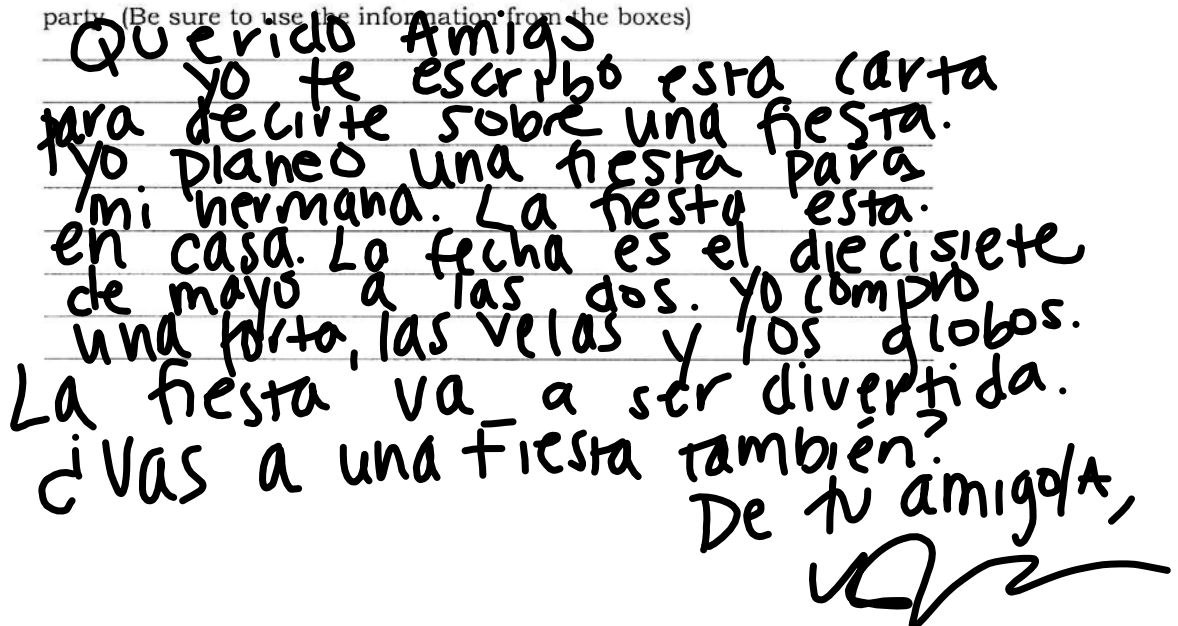 party. (Be sure to use the information from the boxes)
Querido Amigo
yo te escribo esta carta
para decirte sobre una fiesta.
Yo planeo una fiesta para
mi hermana. La fiesta esta.
en casa. La fecha es el diecisiete
de mayo a las dos. yo compro
una torta, las velas y los globos.
La fiesta va a ser divertida.
¿Vas a una Fiesta también?
De tu amigo/A,